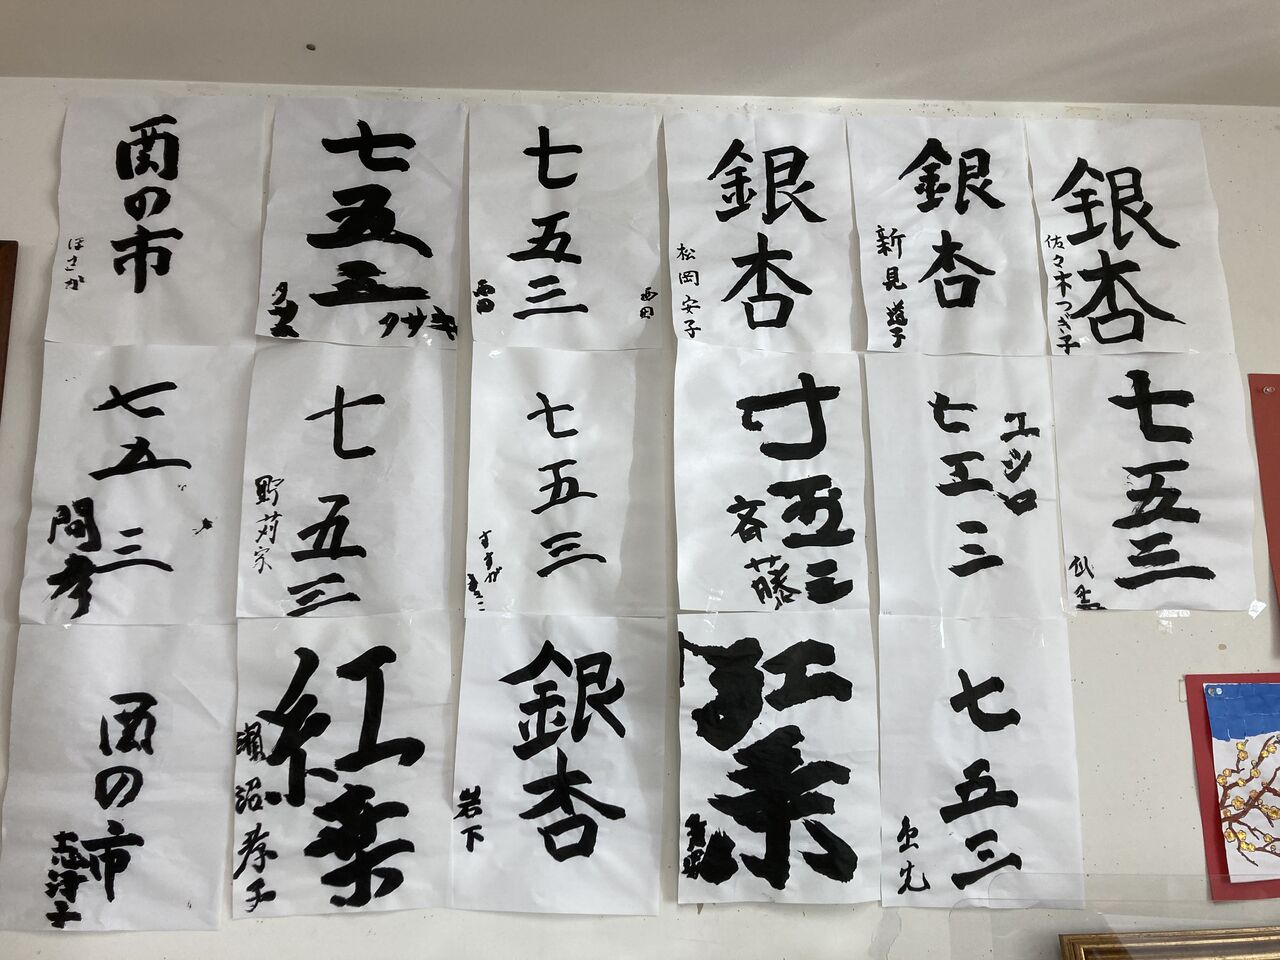 酉の市
ほさか
七五三
タサキ
七五三
西田
西田
銀杏
松岡安子
銀杏
新見道子
銀杏
佐々木つき子
七五三
間孝
七五三
野苅家
七五三
すすが
寸五三
斉藤
七五三
エシロ
七五三
酉の市
志津子
紅葉
瀬沼孝子
銀杏
岩下
紅葉
七五三